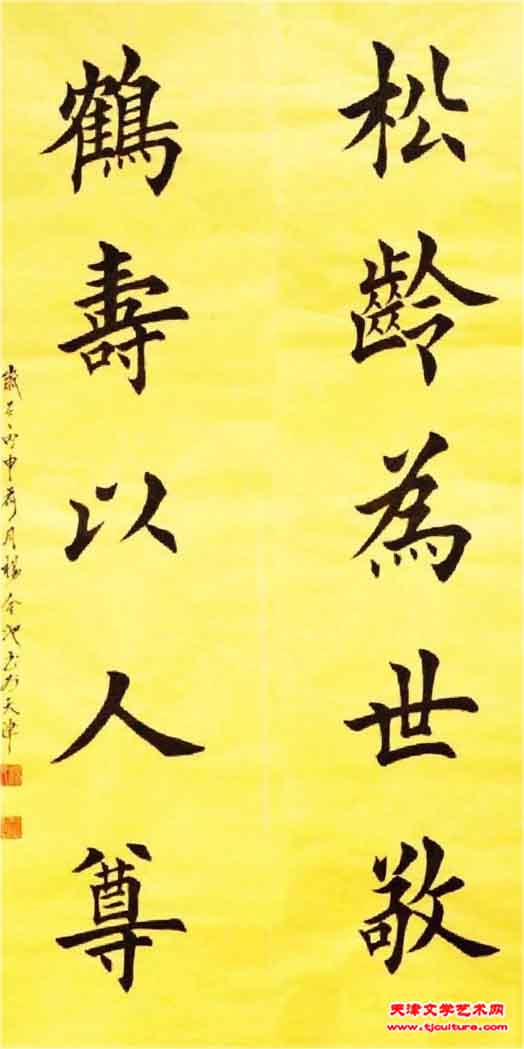 松齡為世敬
鶴壽以人尊
歲在丙申荷月楊金池書於天津
天津文学艺术网
www.tjculture.com